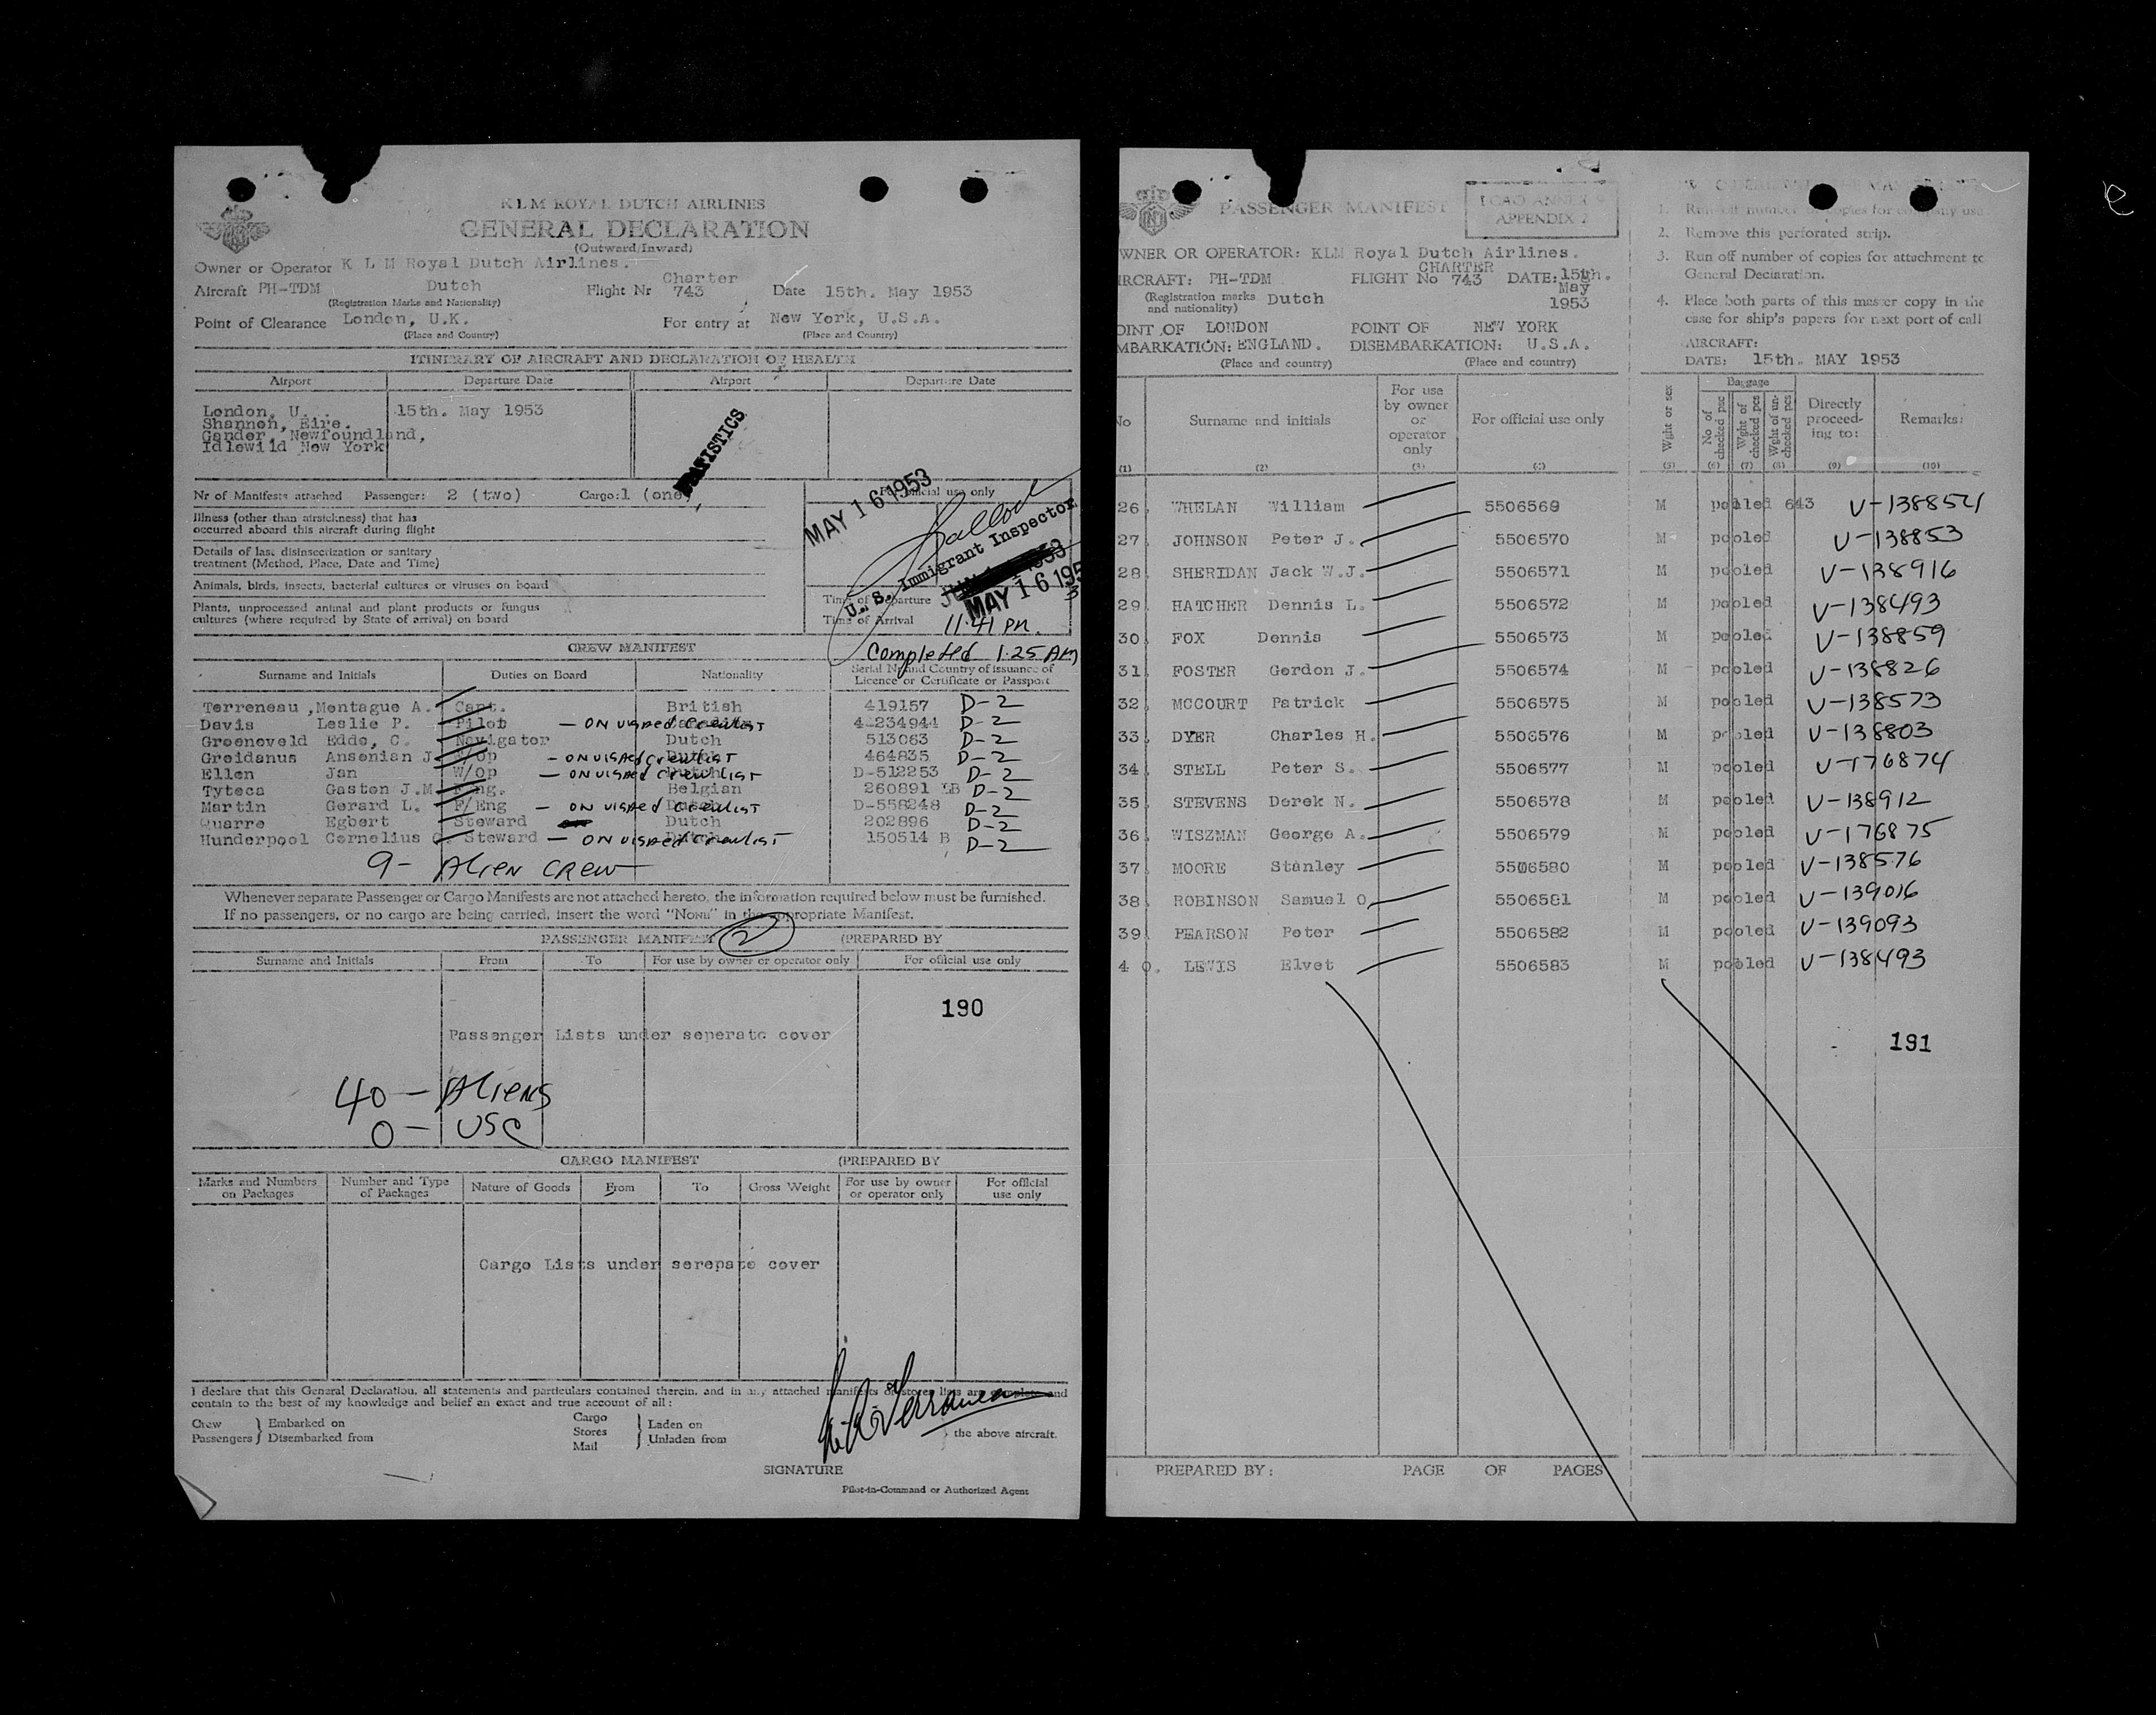 KLM ROYAL DUTCH AIRLINES
GENERAL DECLARATION
(Outward/Inward)
Owner or Operator K L M Royal Dutch Airlines.
Aircraft PH-TDM Dutch Flight Nr Charter 743 Date 15th. May 1953
(Registration Marks and Nationality)
Point of Clearance London, U.K. For entry at New York, U.S.A.
(Place and Country) (Place and Country)
ITINERARY OF AIRCRAFT AND DECLARATION OF HEALTH
Airport Departure Date Airport Departure Date
London, U. . 15th. May 1953
Shannon, Eire.
Gander, Newfoundland,
Idlewild New York
Nr of Manifests attached Passenger: 2 (two) Cargo: 1 (one)
For official use only
MAY 16 1953
Illness (other than airsickness) that has
occurred aboard this aircraft during flight
Details of last disinsectization or sanitary
treatment (Method, Place, Date and Time)
U. S. Immigrant Inspector
Animals, birds, insects, bacterial cultures or viruses on board
Plants, unprocessed animal and plant products or fungus
cultures (where required by State of arrival) on board
Time of Departure MAY 16 1953
Time of Arrival 11:41 PM.
Completed 1:25 AM
CREW MANIFEST
Surname and Initials Duties on Board Nationality Serial Nr and Country of issuance of
Licence or Certificate or Passport
Terreneau ,Montague A. Capt. British 419157 D-2
Davis Leslie P. Pilot — ON VISAED CREWLIST 4-234944 D-2
Groeneveld Edde, C. Navigator Dutch 513063 D-2
Greidanus Ansenian J. W/Op - ON VISAED CREWLIST 464835 D-2
Ellen Jan W/Op — ON VISAED CREWLIST D-512253 D-2
Tyteca Gaston J.M. Eng. Belgian 260891 D-2
Martin Gerard L. F/Eng — ON VISAED CREWLIST D-558248 D-2
Quarre Egbert Steward Dutch 202896 D-2
Hunderpool Cornelius C. Steward — ON VISAED CREWLIST 150514 B D-2
9- ALIEN CREW
Whenever separate Passenger or Cargo Manifests are not attached hereto, the information required below must be furnished.
If no passengers, or no cargo are being carried, insert the word "NONE" in the appropriate Manifest.
PASSENGER MANIFEST 2 (PREPARED BY
Surname and Initials From To For use by owner or operator only For official use only
190
Passenger Lists under seperate cover
40 — ALIENS
0 — USC
CARGO MANIFEST (PREPARED BY
Marks and Numbers on Packages Number and Type of Packages Nature of Goods From To Gross Weight For use by owner or operator only For official use only
Cargo Lists under serepate cover
I declare that this General Declaration, all statements and particulars contained therein, and in any attached manifests or stores lists are complete and
contain to the best of my knowledge and belief an exact and true account of all:
Crew Passengers } Embarked on Disembarked from Cargo Stores Mail } Laden on Unladen from } the above aircraft.
SIGNATURE
Pilot-in-Command or Authorized Agent
PASSENGER MANIFEST
ICAO ANNEX 9
APPENDIX 2
WNER OR OPERATOR: KLM Royal Dutch Airlines.
IRCRAFT: PH-TDM FLIGHT No CHARTER 743 DATE: 15th. May 1953
(Registration marks and nationality) Dutch
OINT OF LONDON POINT OF NEW YORK
MBARKATION: ENGLAND. DISEMBARKATION: U.S.A.
(Place and country) (Place and country)
1. Run off number of copies for company use
2. Remove this perforated strip.
3. Run off number of copies for attachment to
General Declaration.
4. Place both parts of this master copy in the
case for ship's papers for next port of call
AIRCRAFT:
DATE: 15th. MAY 1953
No Surname and initials For use by owner or operator only For official use only Wght or sex Baggage No of checked pcs Wght of checked pcs Wght of un-checked pcs Directly proceed-ing to: Remarks:
(1) (2) (3) (4) (5) (6) (7) (8) (9) (10)
26. WHELAN William 5506569 M pooled 643 V-138854
27. JOHNSON Peter J. 5506570 M pooled V-138853
28. SHERIDAN Jack W.J. 5506571 M pooled V-138916
29. HATCHER Dennis L. 5506572 M pooled V-138493
30. FOX Dennis 5506573 M pooled V-138859
31. FOSTER Gordon J. 5506574 M pooled V-138826
32. MCCOURT Patrick 5506575 M pooled V-138573
33. DYER Charles H. 5506576 M pooled V-138803
34. STELL Peter S. 5506577 M pooled V-176874
35. STEVENS Derek N. 5506578 M pooled V-138912
36. WISZMAN George A. 5506579 M pooled V-176875
37. MOORE Stanley 5506580 M pooled V-138576
38. ROBINSON Samuel O. 5506581 M pooled V-139016
39. PEARSON Peter 5506582 M pooled V-139093
4 0. LEWIS Elvet 5506583 M pooled V-138493
191
PREPARED BY: PAGE OF PAGES